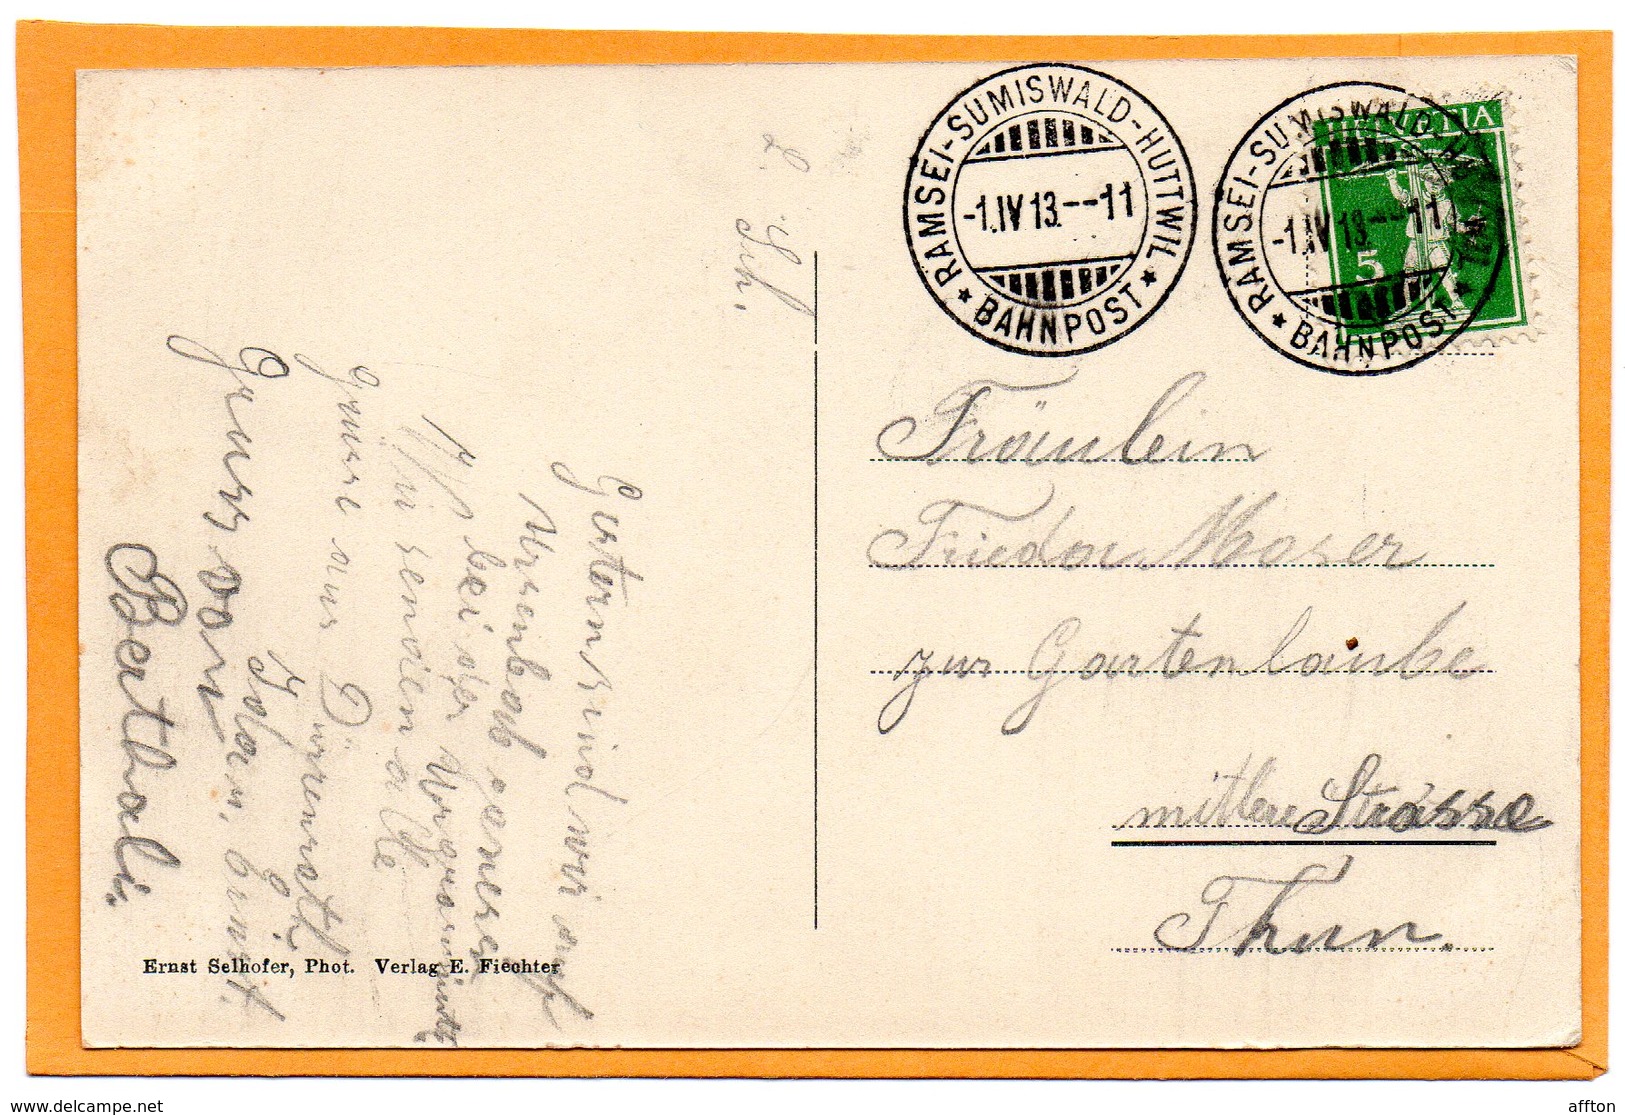 RAMSEI-SUMISWALD-HUTTWIL
-1.IV 13.--11
★ BAHNPOST ★
RAMSEI-SUMISWALD-HUTTWIL
-1.IV 13.--11
★ BAHNPOST ★
HELVETIA
5
Fräulein
Frieda Moser
zur Gartenlaube
mittlere Strasse
Thun.
L. 
Sch.
Gestern sind wir auf
bei der
Wir senden alle
grüsse aus Dürrenroth
Gruss von
Ernst Selhofer, Phot. Verlag E. Fiechter
delcampe.net
affton